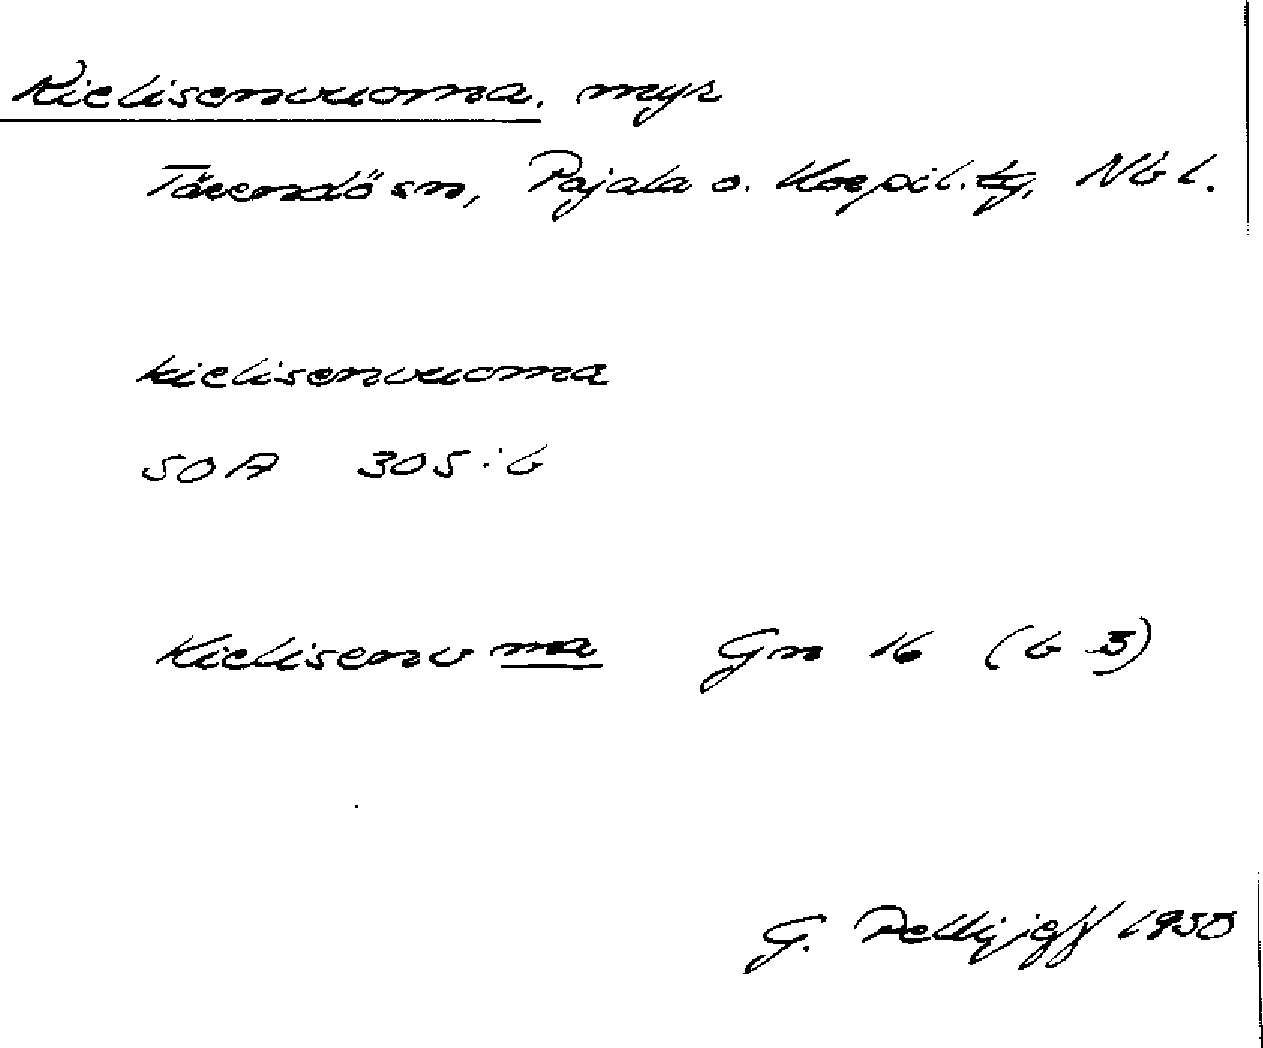 Kielisenvuoma, myr
Tärendö sn, Pajala o. Korpil. tg, Nb l.
kielisenvuoma
SOA 305:6
Kielisenv ma Gn 16 (b 3)
G. Pellijeff 1950